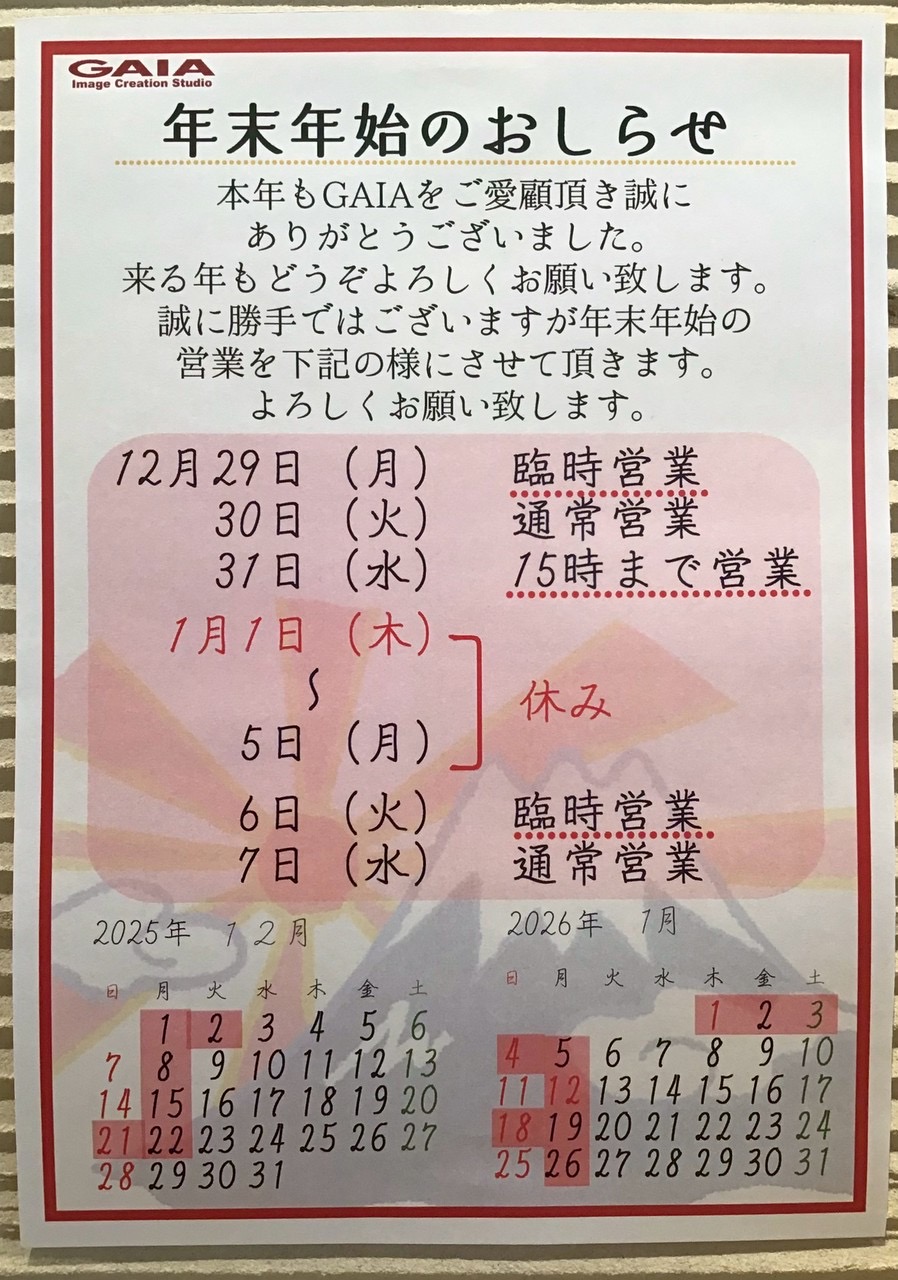 GAIA
Image Creation Studio
年末年始のおしらせ
本年もGAIAをご愛顧頂き誠に
ありがとうございました。
来る年もどうぞよろしくお願い致します。
誠に勝手ではございますが年末年始の
営業を下記の様にさせて頂きます。
よろしくお願い致します。
12月29日（月） 臨時営業
30日（火） 通常営業
31日（水） 15時まで営業
1月1日（木）
〜 休み
5日（月）
6日（火） 臨時営業
7日（水） 通常営業
2025年 12月
日 月 火 水 木 金 土
1 2 3 4 5 6
7 8 9 10 11 12 13
14 15 16 17 18 19 20
21 22 23 24 25 26 27
28 29 30 31
2026年 1月
日 月 火 水 木 金 土
1 2 3
4 5 6 7 8 9 10
11 12 13 14 15 16 17
18 19 20 21 22 23 24
25 26 27 28 29 30 31